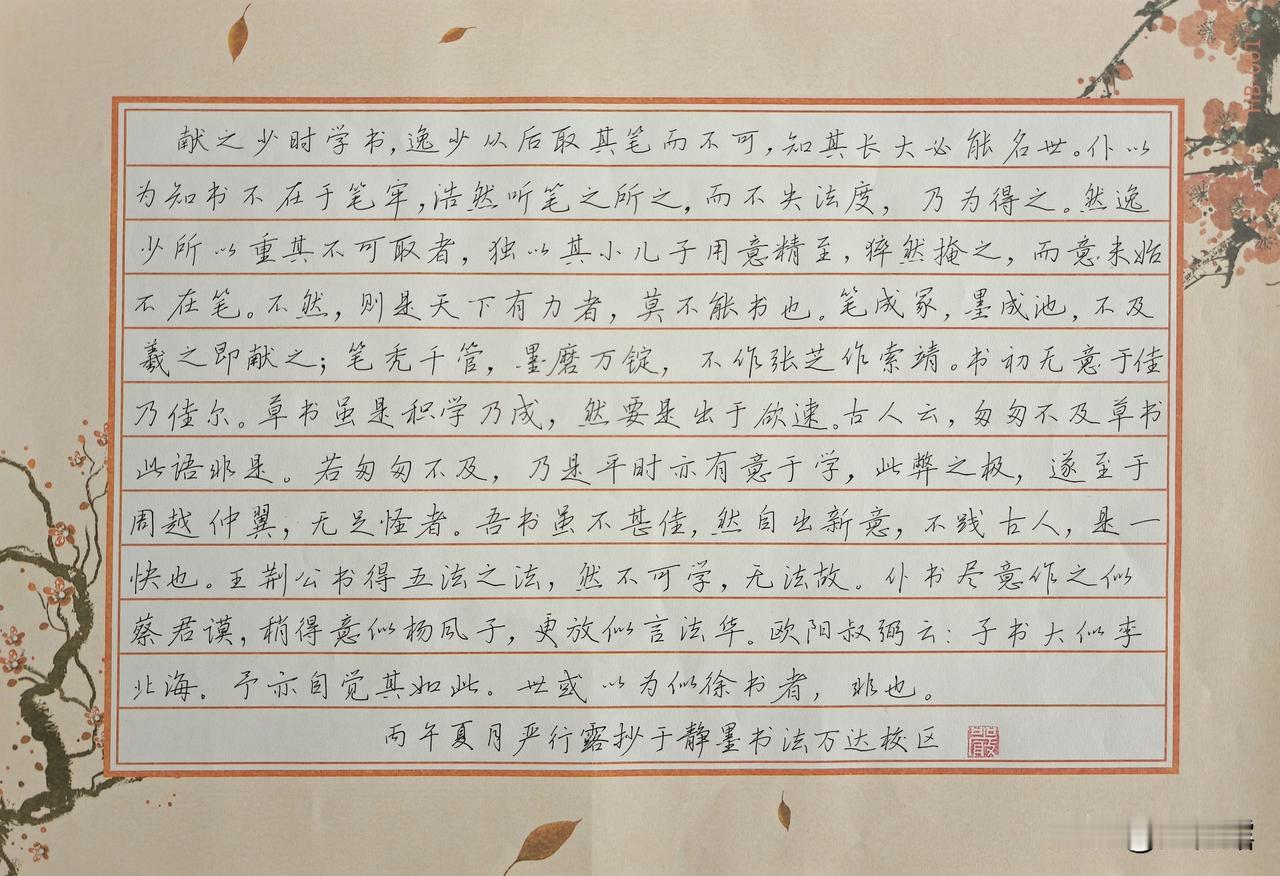 献之少时学书，逸少从后取其笔而不可，知其长大必能名世。仆以
为知书不在于笔牢，浩然听笔之所之，而不失法度，乃为得之。然逸
少所以重其不可取者，独以其小儿子用意精至，猝然掩之，而意未始
不在笔。不然，则是天下有力者，莫不能书也。笔成冢，墨成池，不及
羲之即献之；笔秃千管，墨磨万锭，不作张芝作索靖。书初无意于佳
乃佳尔。草书虽是积学乃成，然要是出于欲速。古人云，匆匆不及草书
此语非是。若匆匆不及，乃是平时亦有意于学，此弊之极，遂至于
周越仲翼，无足怪者。吾书虽不甚佳，然自出新意，不践古人，是一
快也。王荆公书得五法之法，然不可学，无法故。仆书尽意作之似
蔡君谟，稍得意似杨风子，更放似言法华。欧阳叔弼云：子书大似李
北海。予亦自觉其如此。世或以为似徐书者，非也。
丙午夏月严行露抄于静墨书法万达校区